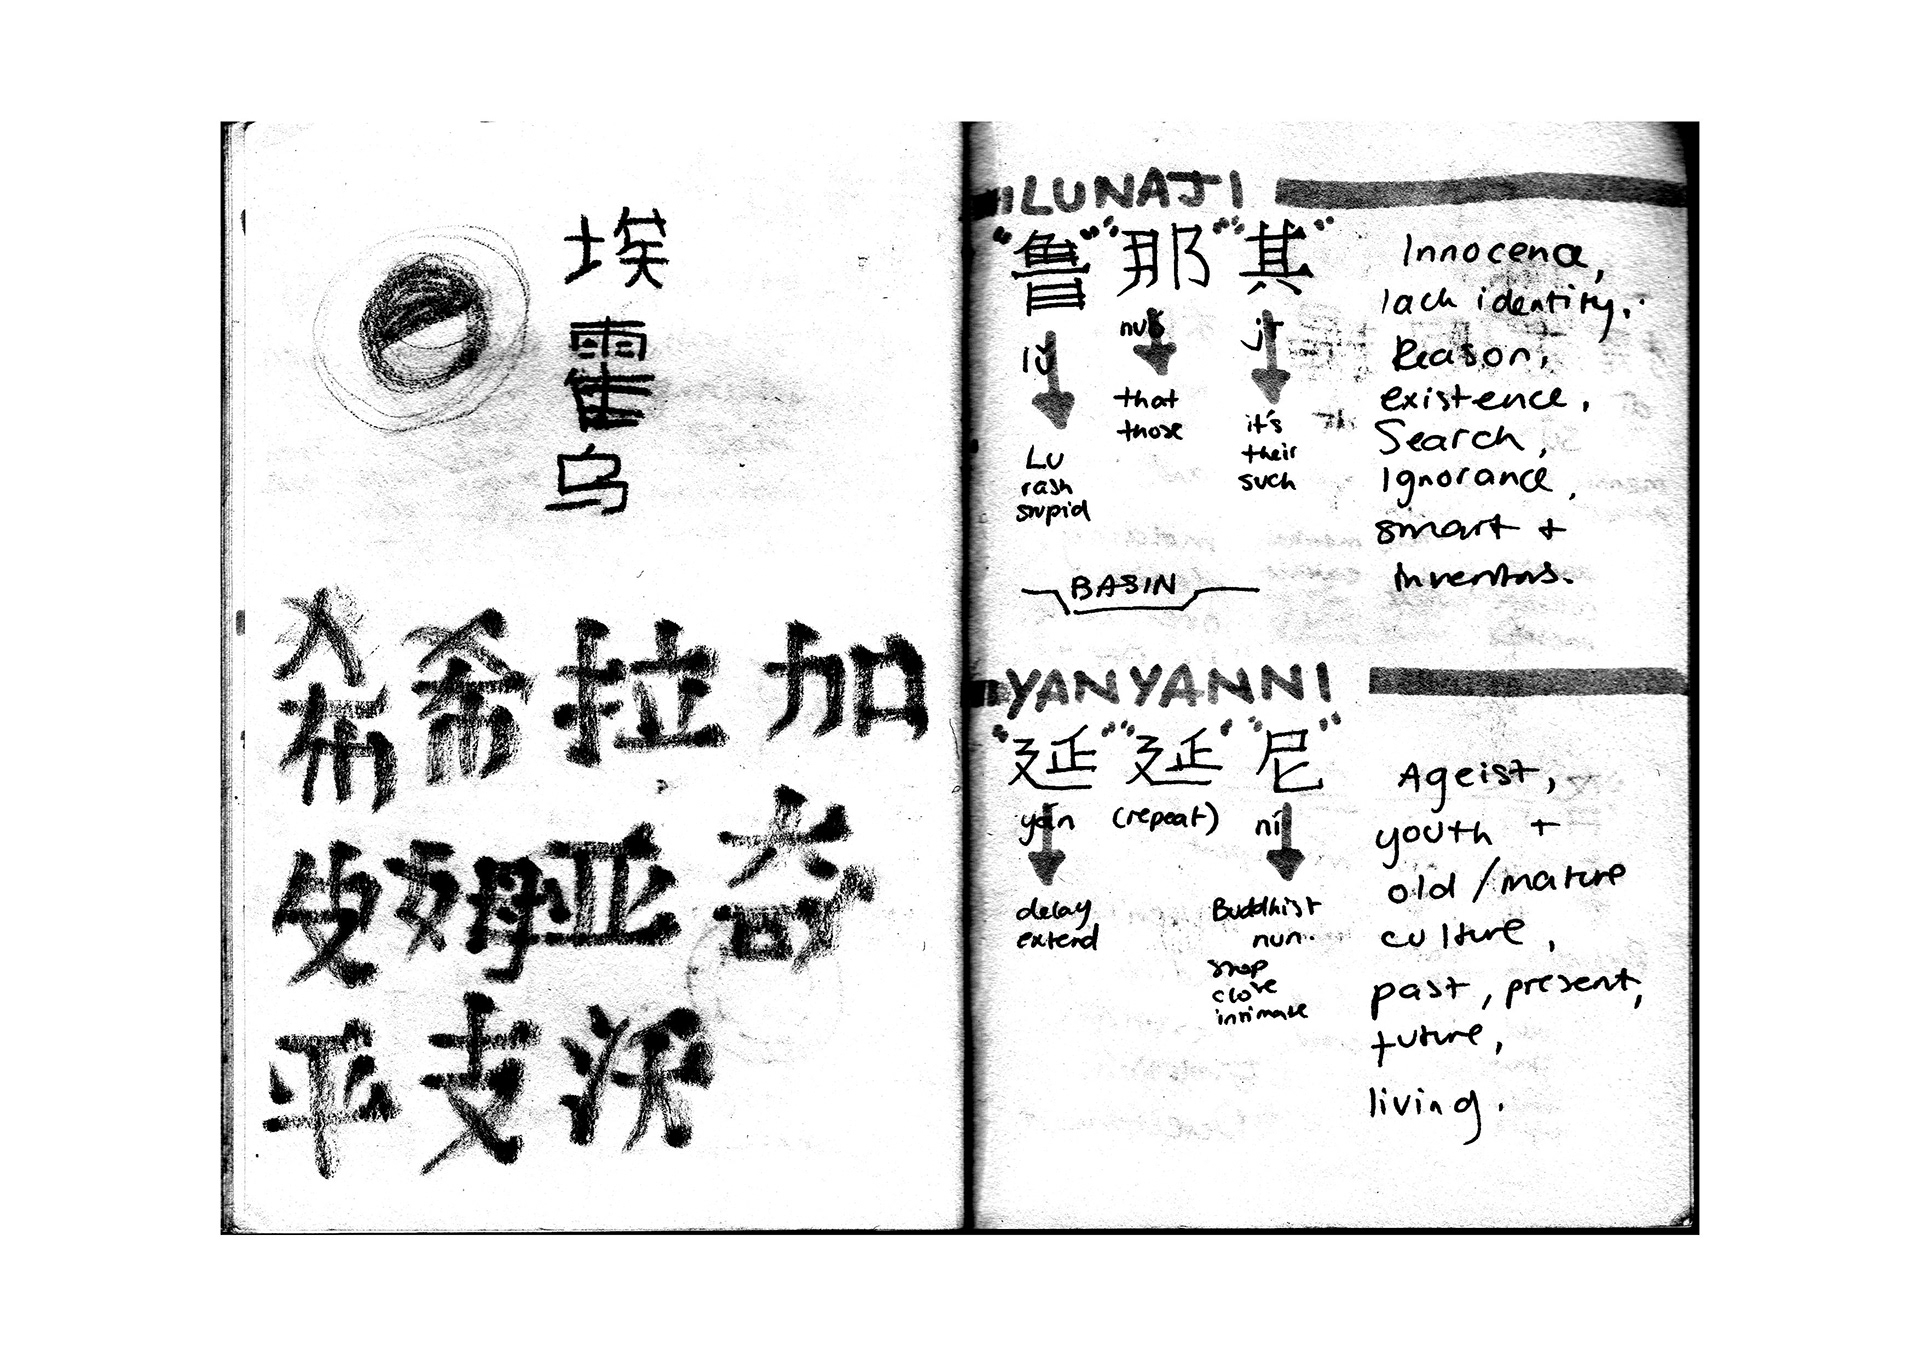 埃
霍
乌
希希拉加
麦姆亚奇
平克沃
LUNAJI
"鲁" "那" "其"
lǔ
jī
that
those
Lu
rash
stupid
it's
their
such
Innocence,
lack identity.
Reason,
existence,
Search,
Ignorance,
smart +
inventors.
BASIN
YANYANNI
"延" "延" "尼"
yán (repeat) ní
delay
extend
Buddhist
nun.
stop
close
intimate
Ageist,
youth +
old / mature
culture,
past, present,
future,
living.